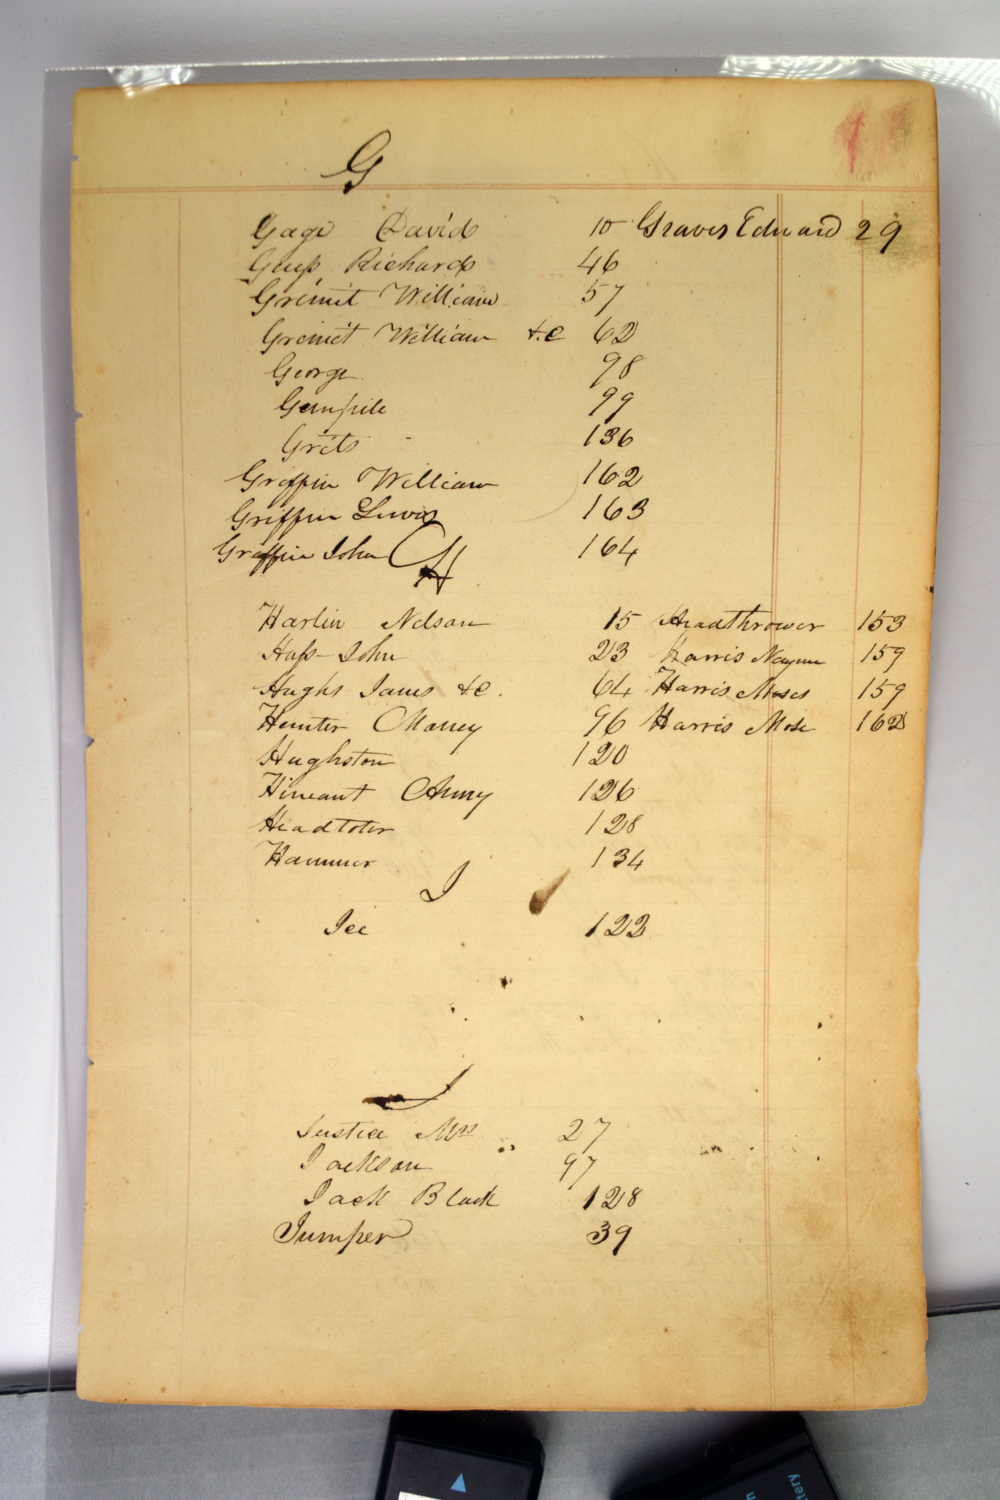 G
Gage David 10 Graves Edward 29
Guess Richard 46
Grimit William 57
Grimit William &c 62
George 98
99
Grits 136
Griffin William 162
Griffin Lewis 163
Griffin John 164
H
Harlin Nelson 15 Headthrower 153
Hass John 23 Harris 159
Hughs James &c. 64 Harris Moses 159
Hunter Maney 96 Harris Mose 162
Hughston 120
Hineant Anny 126
Headtoter 128
Hammer 134
I
Ice 122
J
Justice Mrs 27
Jackson 97
Jack Black 128
Jumper 39
ttery